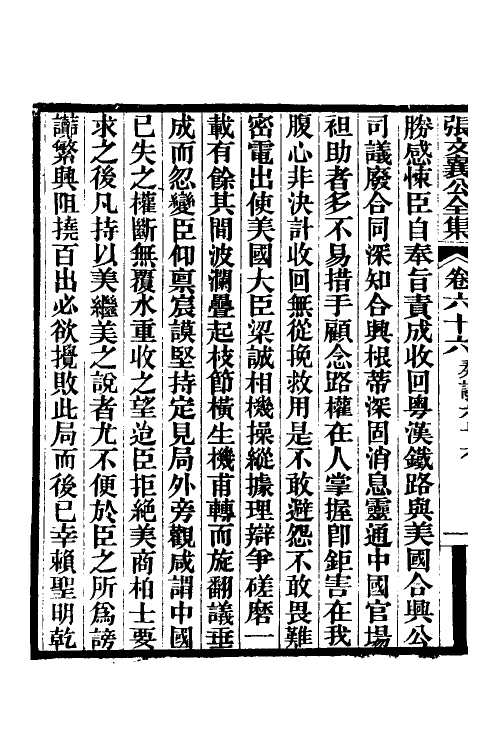 張文襄公全集 卷六十六 奏議六十六 一
勝感悚臣自奉旨責成收回粵漢鐵路與美國合興公
司議廢合同深知合興根蒂深固消息靈通中國官場
袒助者多不易措手顧念路權在人掌握卽鉅害在我
腹心非決計收回無從挽救用是不敢避怨不敢畏難
密電出使美國大臣梁誠相機操縱據理辯爭磋磨一
載有餘其間波瀾疊起枝節橫生機甫轉而旋翻議垂
成而忽變臣仰禀宸謨堅持定見局外旁觀咸謂中國
已失之權斷無覆水重收之望迨臣拒絕美商柏士要
求之後凡持以美繼美之說者尤不便於臣之所爲謗
讟繁興阻撓百出必欲攪敗此局而後已幸賴聖明乾